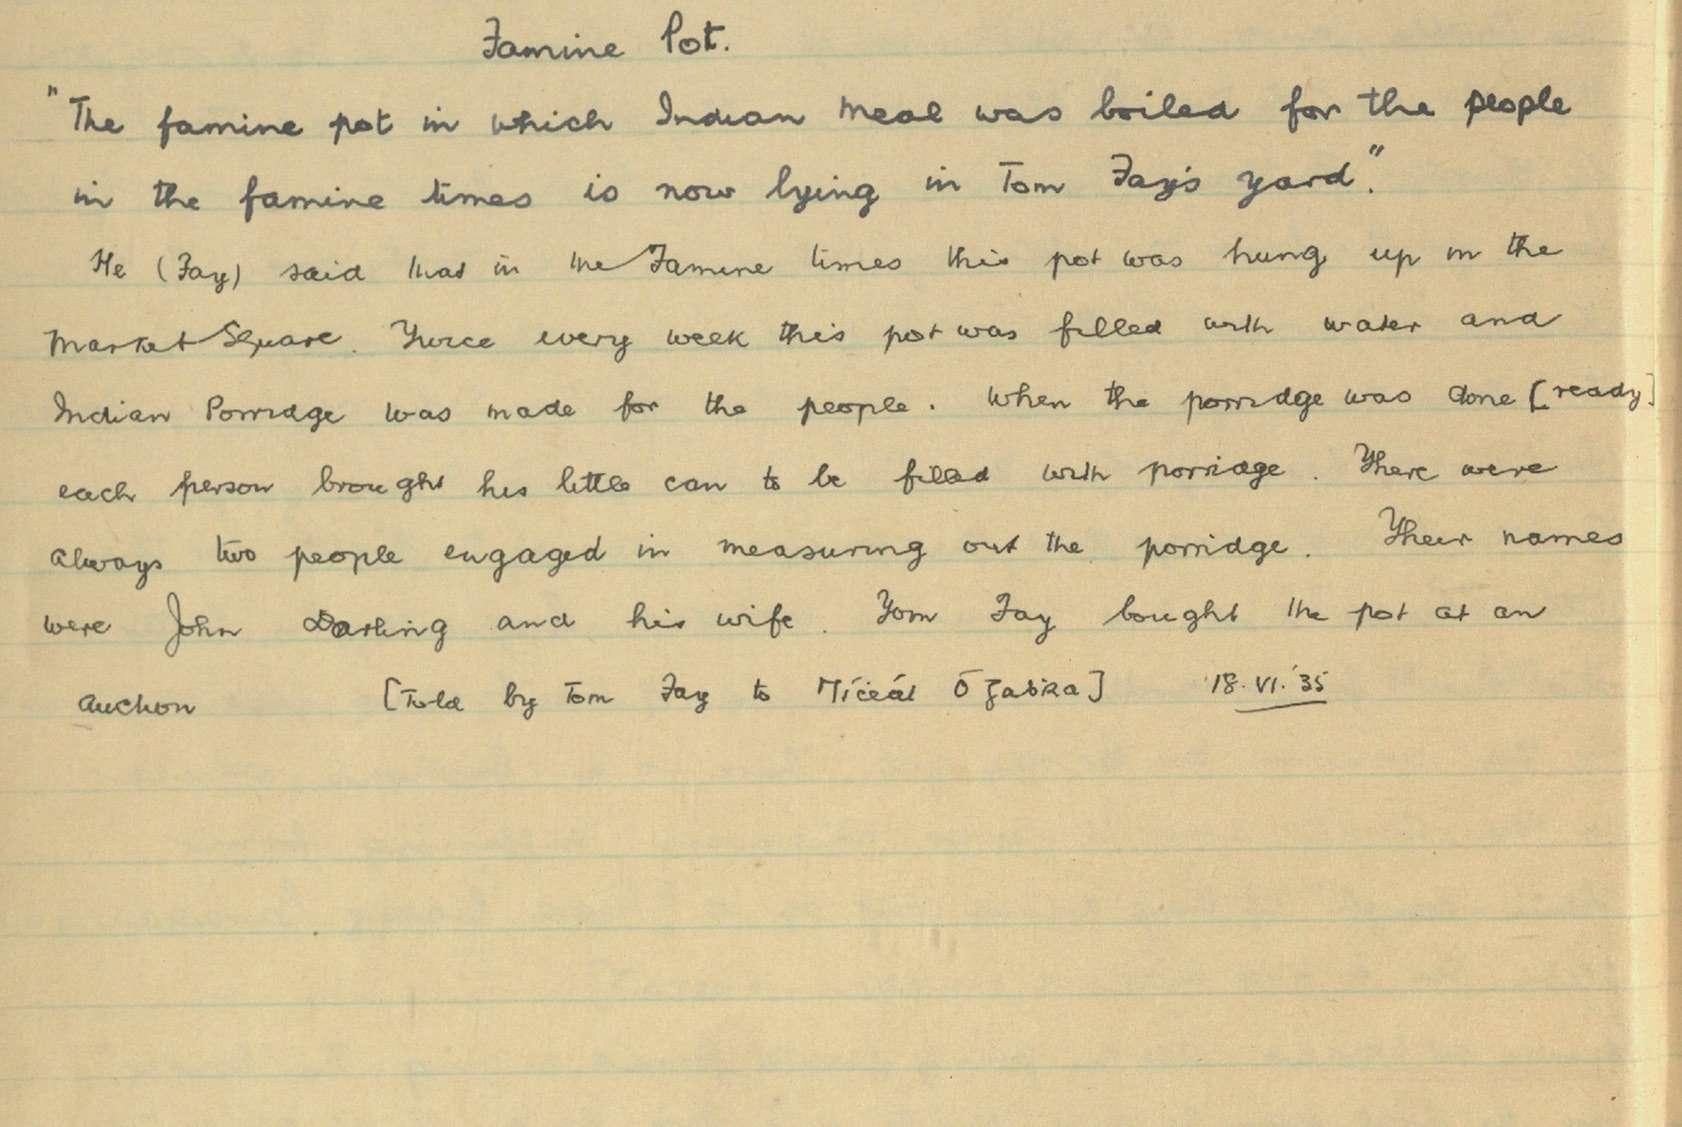 Famine Pot.
"The famine pot in which Indian meal was boiled for the people
in the famine times is now lying in Tom Fay's yard".
He (Fay) said that in the Famine times this pot was hung up in the
Market Square. Twice every week this pot was filled with water and
Indian Porridge was made for the people. When the porridge was done [ready]
each person brought his little can to be filled with porridge. There were
always two people engaged in measuring out the porridge. Their names
were John Darling and his wife. Tom Fay bought the pot at an
auction [Told by Tom Fay to Míceál Ó Gabra] 18.VI.'35